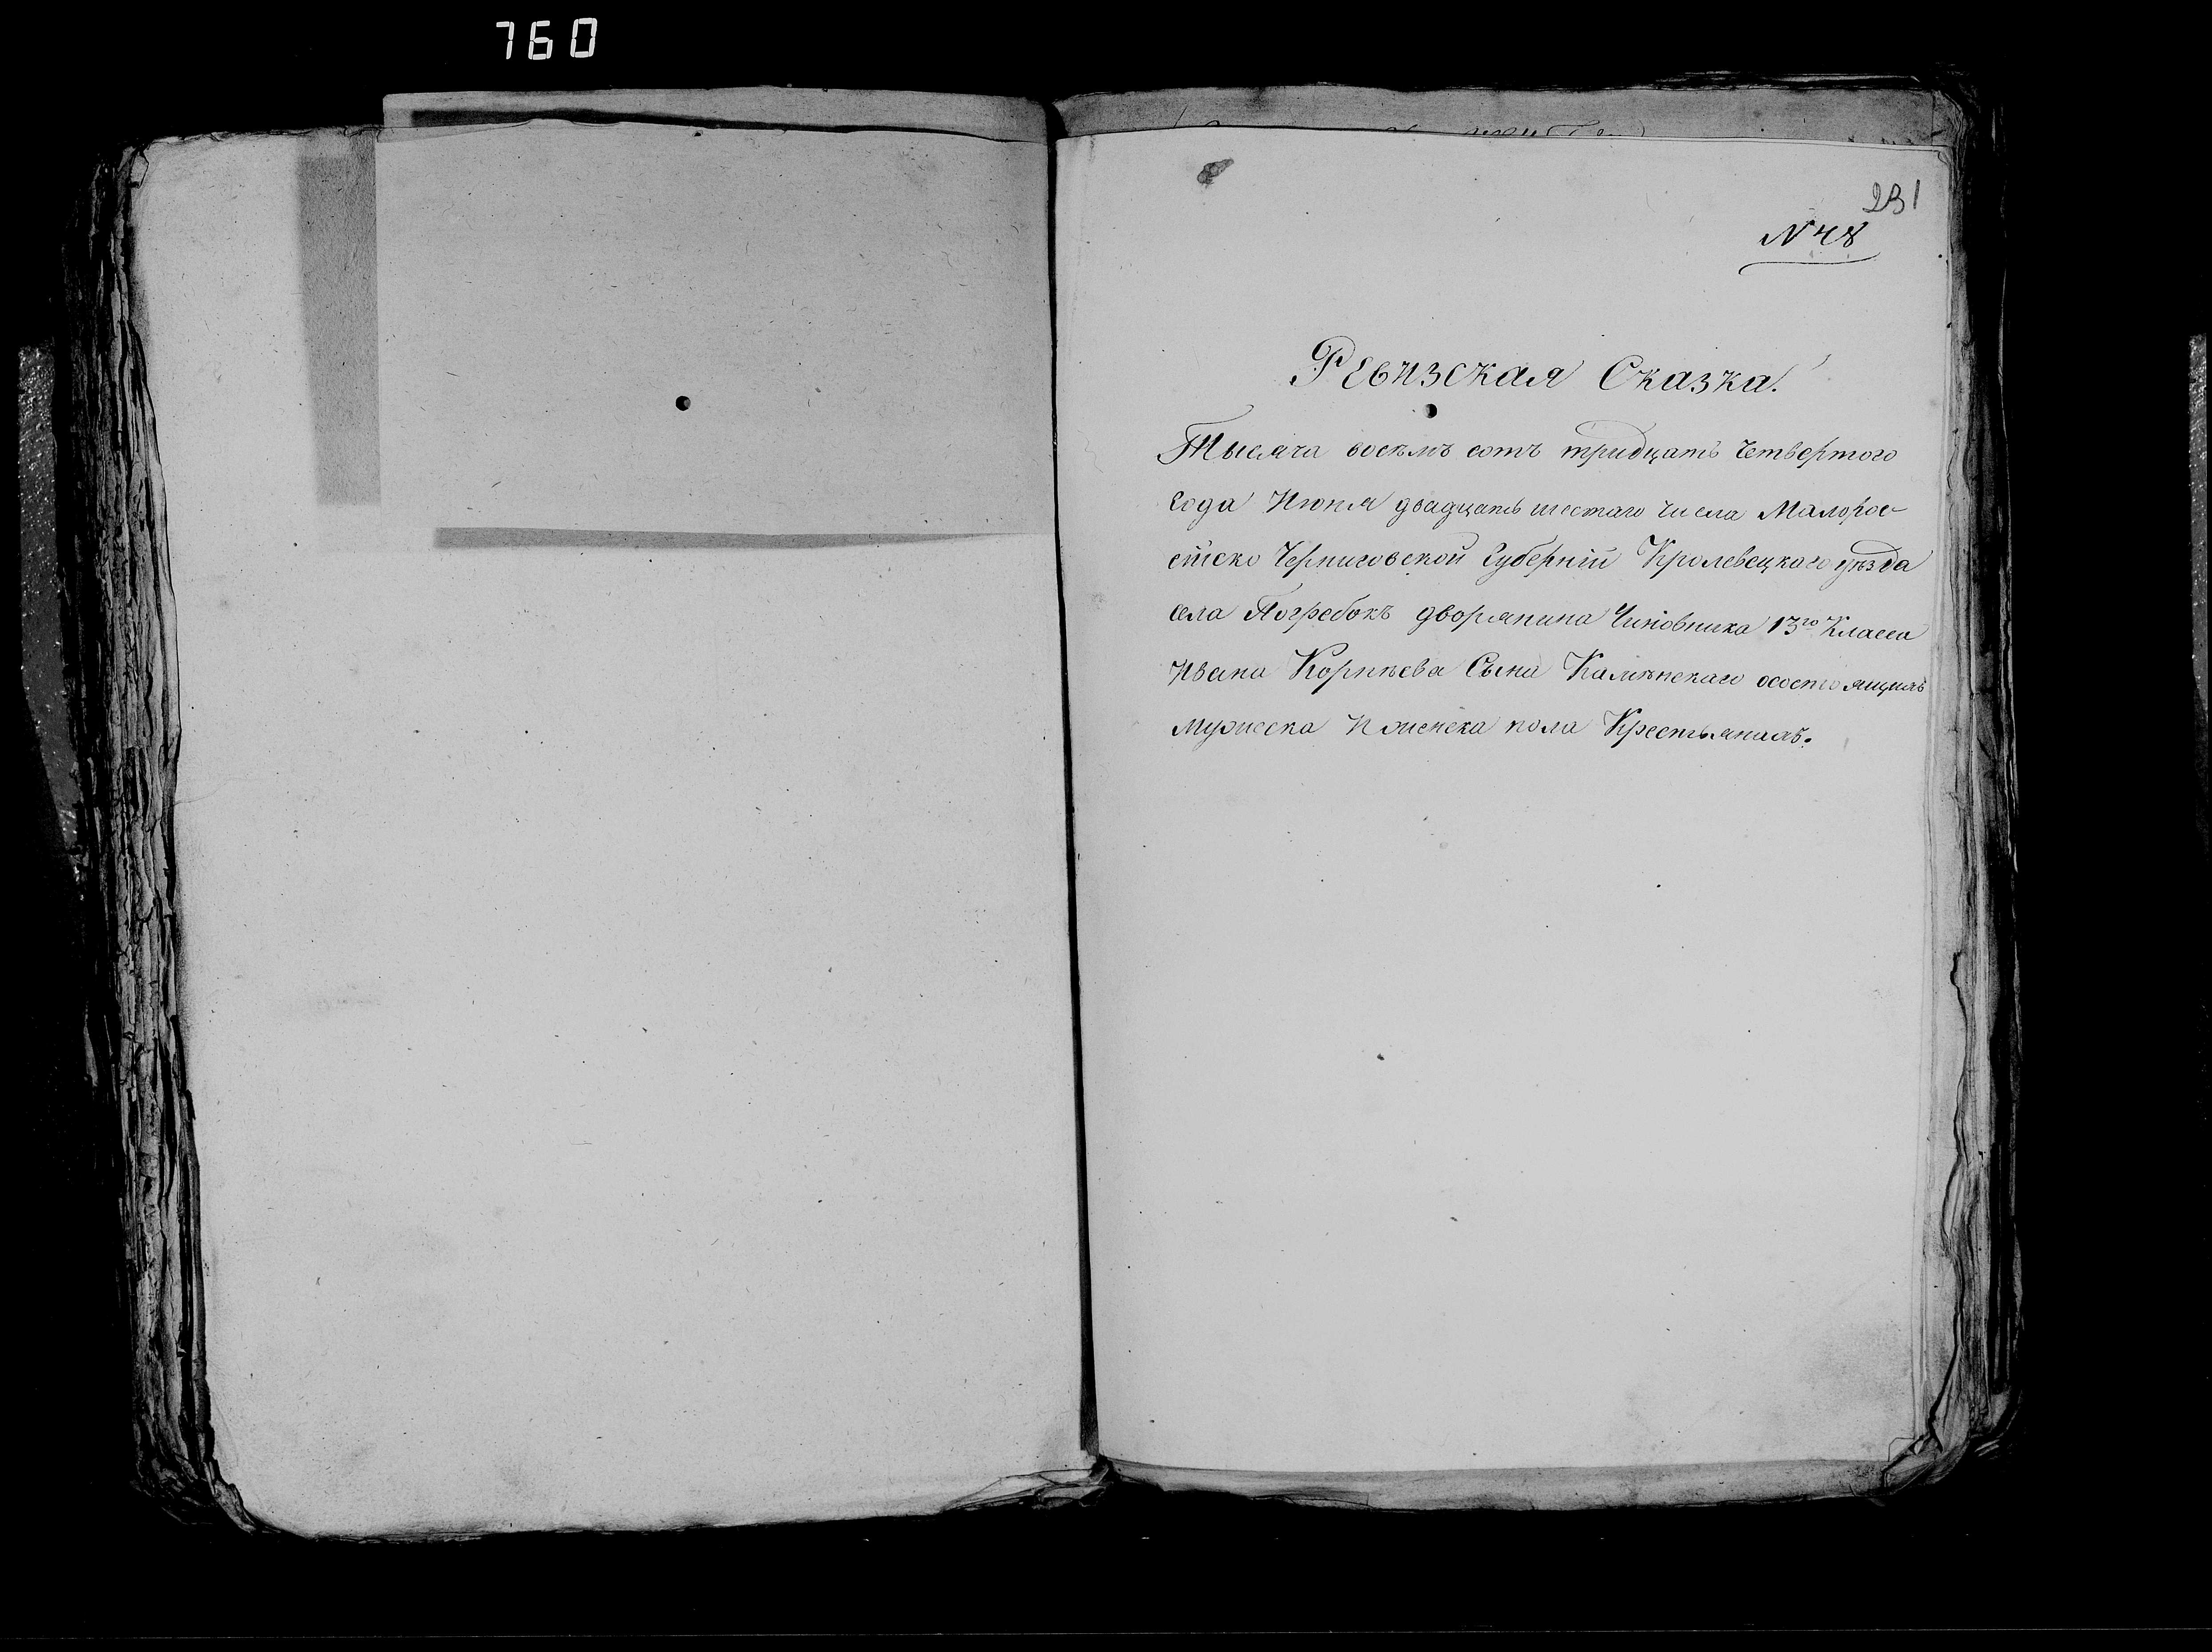 760
231
N 48
Ревизская Сказка.
Тысяча восемъ сотъ тридцать Четвертого
Года Июня двадцать шестаго числа Малорос-
сійско Черниговской Губерніи Кролевецкого уѣзда
села Погребокъ дворянина Чиновника 13го Класса
Ивана Корнѣева Сына Камѣнскаго осостоящихъ
Мужеска И женска пола Крестьянахъ.